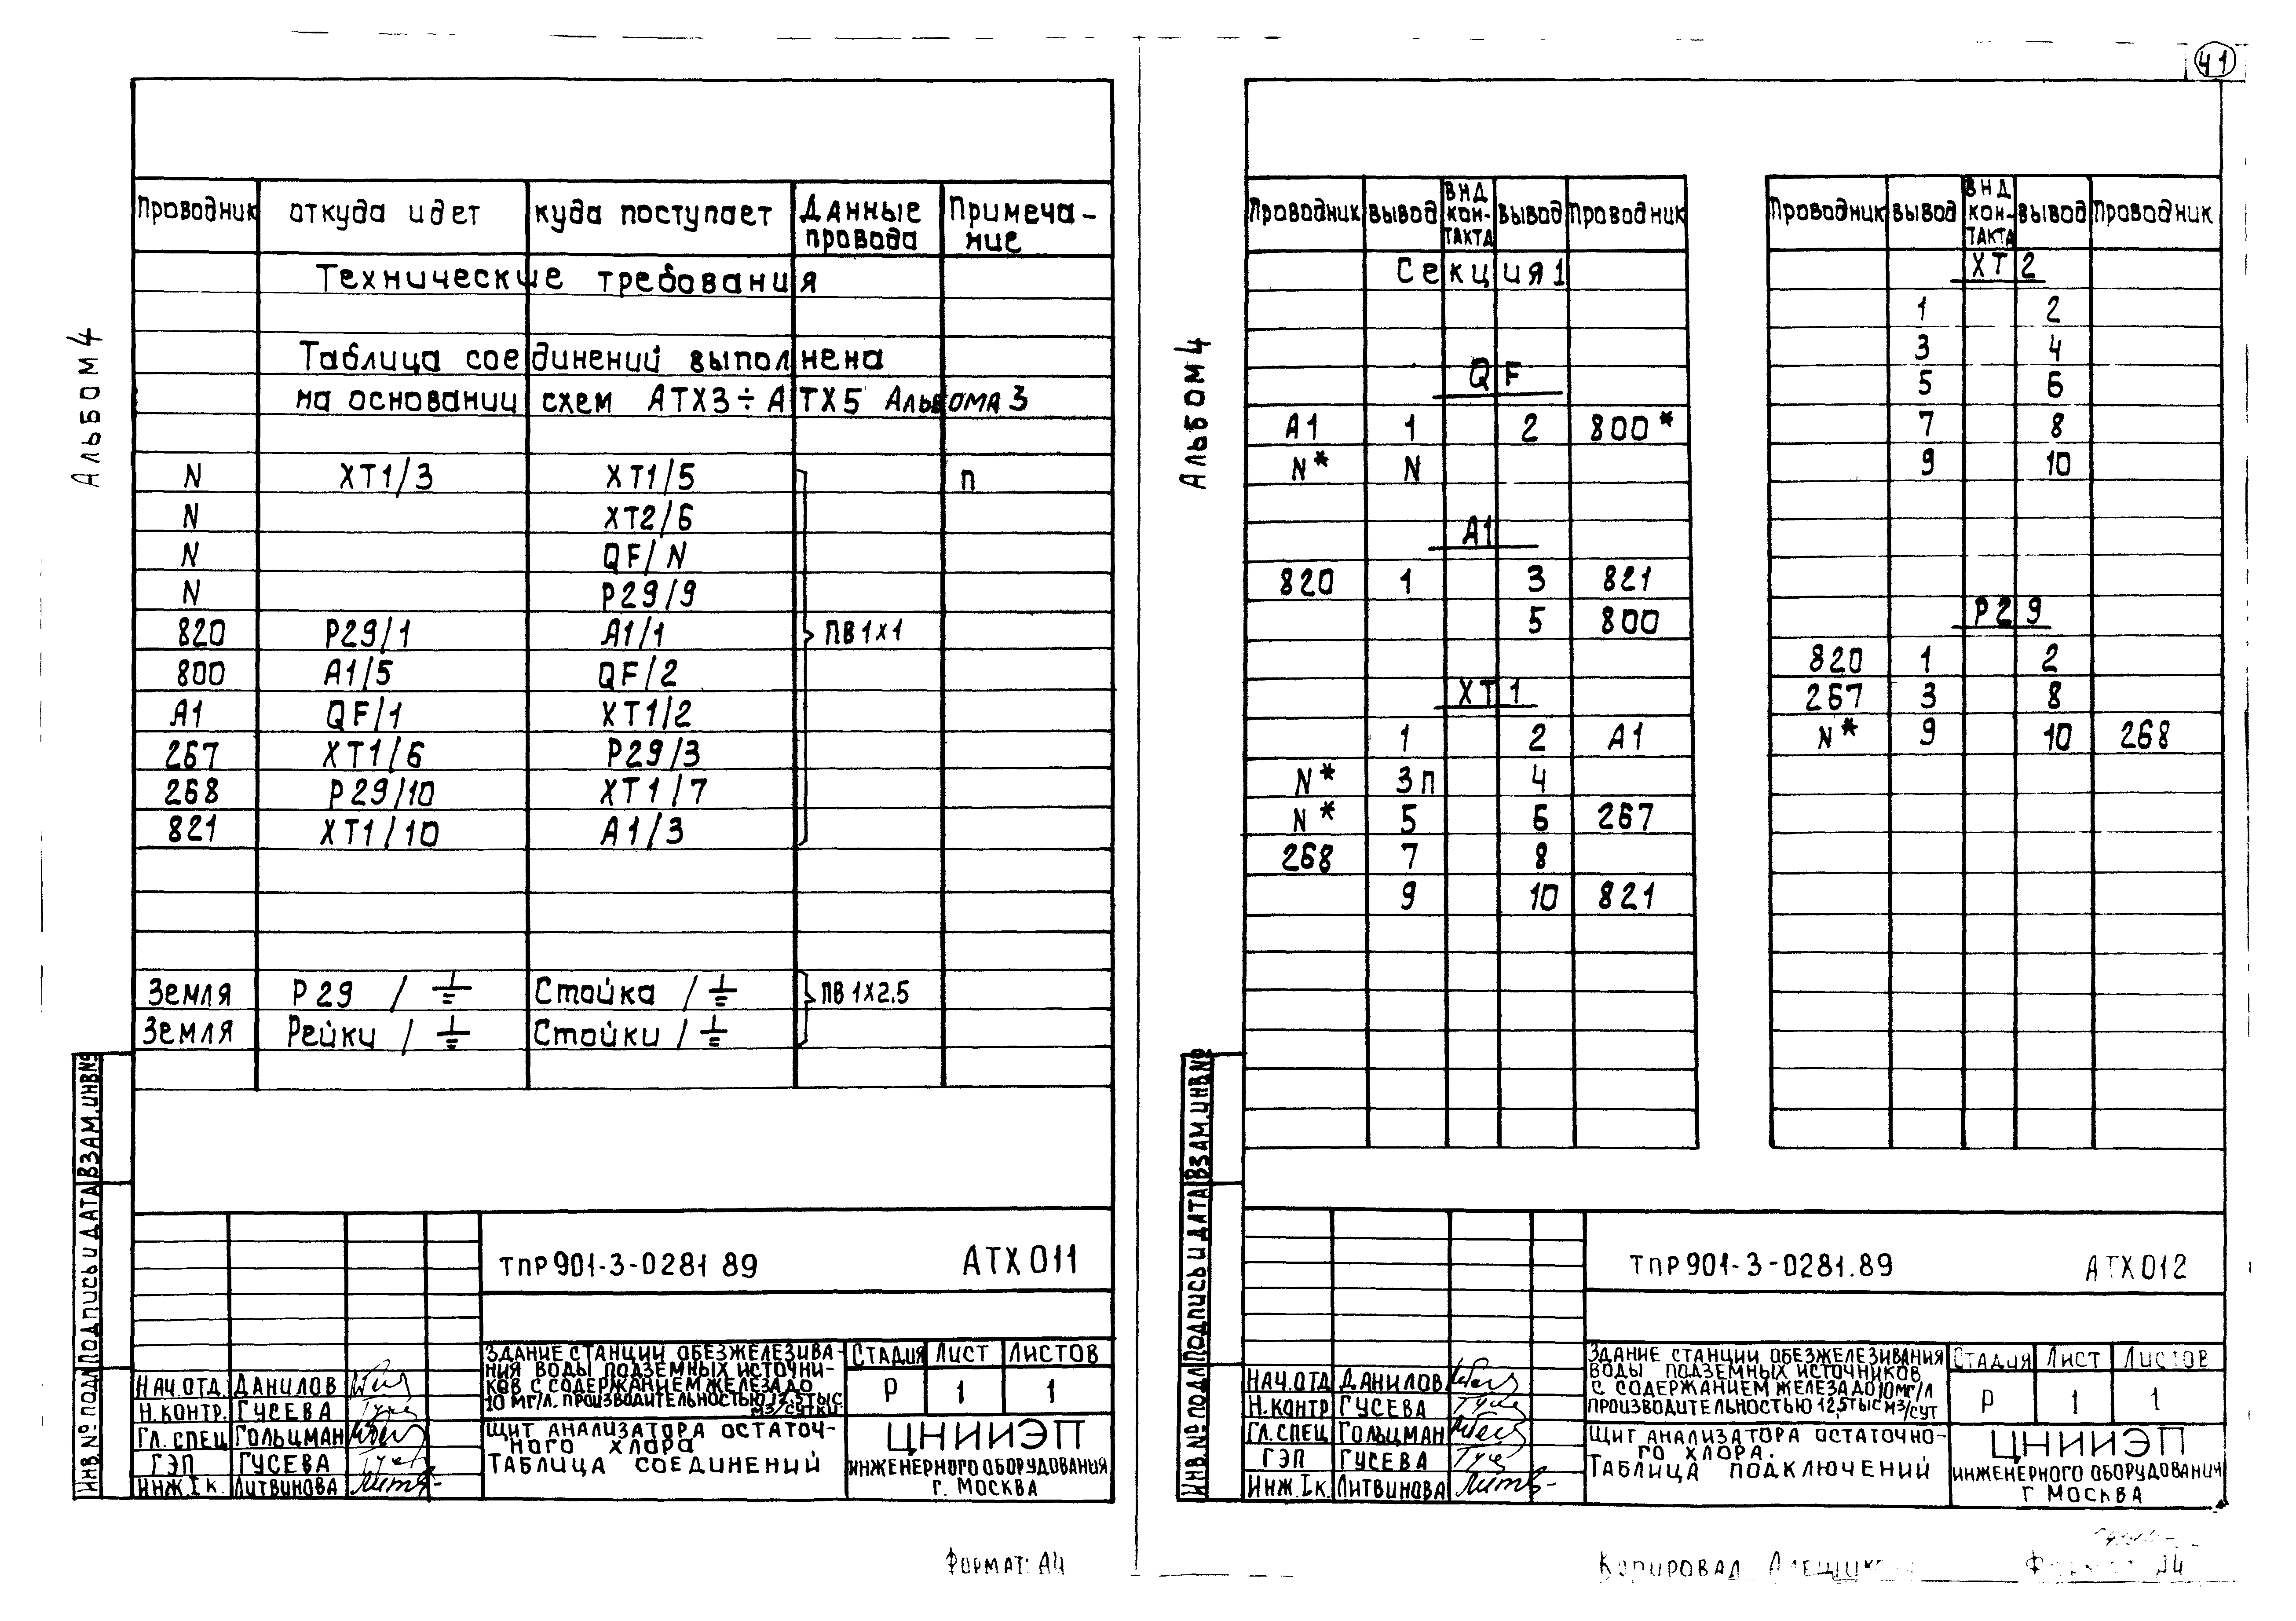 41
Альбом 4
Проводник откуда идет куда поступает Данные провода Примеча-ние
Технические требования
Таблица соединений выполнена
на основании схем АТХ3÷АТХ5 Альбома 3
N XT1/3 XT1/5 п
N XT2/6
N QF/N
N P29/9
820 P29/1 A1/1 ПВ 1x1
800 A1/5 QF/2
A1 QF/1 XT1/2
267 XT1/6 P29/3
268 P29/10 XT1/7
821 XT1/10 A1/3
Земля P29 / ⏚ Стойка / ⏚ ПВ 1x2.5
Земля Рейки / ⏚ Стойки / ⏚
ИНВ.№ ПОДЛ ПОДПИСЬ И ДАТА ВЗАМ.ИНВ№
ТПР 901-3-0281 89 АТХ 011
ЗДАНИЕ СТАНЦИИ ОБЕЗЖЕЛЕЗИВА-
НИЯ ВОДЫ ПОДЗЕМНЫХ ИСТОЧНИ-
КОВ С СОДЕРЖАНИЕМ ЖЕЛЕЗА ДО
10 МГ/Л. ПРОИЗВОДИТЕЛЬНОСТЬЮ 12,5 ТЫС.
М3/СУТКИ
СТАДИЯ ЛИСТ ЛИСТОВ
Р 1 1
НАЧ.ОТД. ДАНИЛОВ
Н.КОНТР. ГУСЕВА
ГЛ. СПЕЦ ГОЛЬЦМАН
ГЭП ГУСЕВА
ИНЖ.I К. ЛИТВИНОВА
ЩИТ АНАЛИЗАТОРА ОСТАТОЧ-
НОГО ХЛОРА
ТАБЛИЦА СОЕДИНЕНИЙ
ЦНИИЭП
ИНЖЕНЕРНОГО ОБОРУДОВАНИЯ
Г. МОСКВА
ФОРМАТ: А4
Альбом 4
Проводник вывод вид кон-такта вывод проводник
Секция 1
QF
A1 1 2 800*
N* N
A1
820 1 3 821
5 800
XT1
1 2 A1
N* 3п 4
N* 5 6 267
268 7 8
9 10 821
Проводник вывод вид кон-такта вывод проводник
XT2
1 2
3 4
5 6
7 8
9 10
P29
820 1 2
267 3 8
N* 9 10 268
ИНВ.№ ПОДЛ ПОДПИСЬ И ДАТА ВЗАМ.ИНВ№
ТПР 901-3-0281.89 АТХ 012
ЗДАНИЕ СТАНЦИИ ОБЕЗЖЕЛЕЗИВАНИЯ
ВОДЫ ПОДЗЕМНЫХ ИСТОЧНИКОВ
С СОДЕРЖАНИЕМ ЖЕЛЕЗА ДО 10 МГ/Л
ПРОИЗВОДИТЕЛЬНОСТЬЮ 12,5 ТЫС М3/СУТ
СТАДИЯ ЛИСТ ЛИСТОВ
Р 1 1
НАЧ.ОТД ДАНИЛОВ
Н.КОНТР ГУСЕВА
ГЛ. СПЕЦ ГОЛЬЦМАН
ГЭП ГУСЕВА
ИНЖ. I К. ЛИТВИНОВА
ЩИТ АНАЛИЗАТОРА ОСТАТОЧНО-
ГО ХЛОРА.
ТАБЛИЦА ПОДКЛЮЧЕНИЙ
ЦНИИЭП
ИНЖЕНЕРНОГО ОБОРУДОВАНИЯ
Г. МОСКВА
Копировал Формат А4